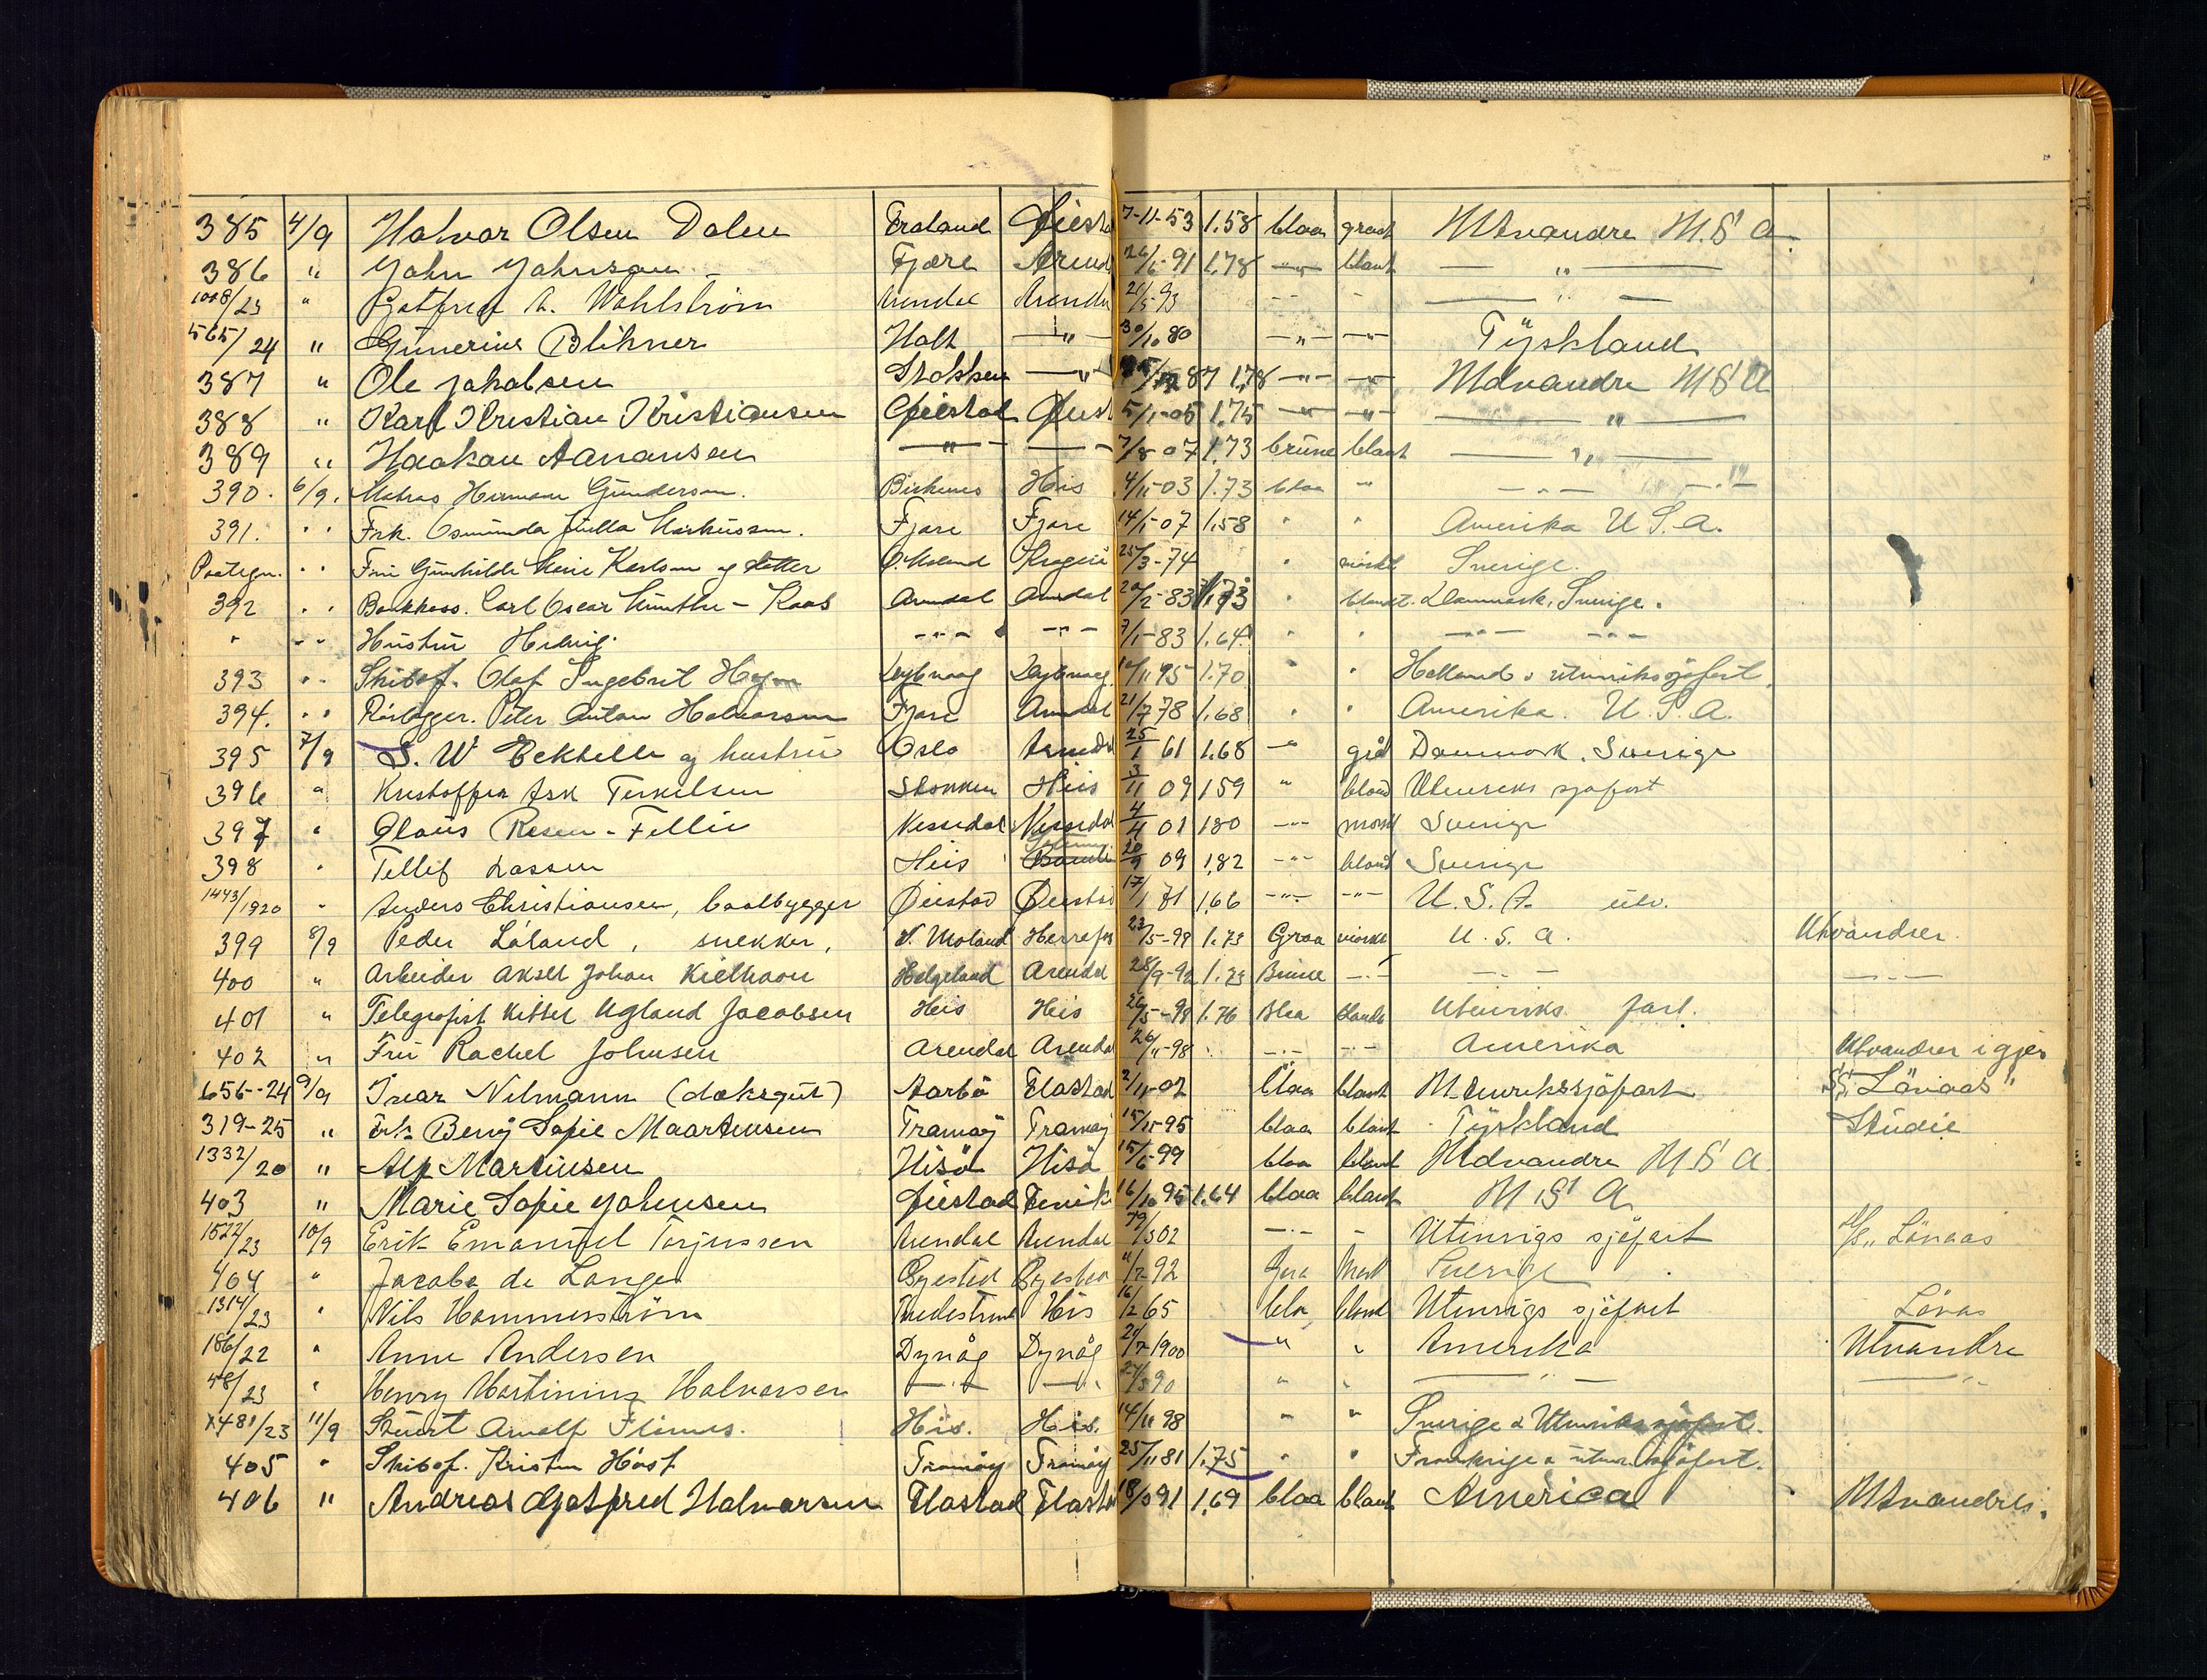 385 4/9 Halvor Olsen Dalen Froland Øiesta 7-11-53 1.58 blaa graat Utvandre U.S.A.
386 " John Johnson Fjære Arend 26/6-91 1.78 —"— blant — " —
1008/23 " Gotfred A. Wahlström Arendal Arenda 21/5 93 — " —
565/24 " Gunerius Blikner Holt —"— 30/10 80 —"— —"— Tyskland
387 " Ole Jakobsen Stokken —"— 87 1.78 —"— —"— Udvandre U.S.A
388 " Karl Kristian Kristiansen Øiestad Øiest 5/1-05 1.75 —"— —"— — " —
389 " Haakon Aanansen —"— —"— 7/8-07 1.73 brune blant — " —
390. 6/9. Herman Gundersen. Birkenes His 4/11-03 1.73 blaa " —"— —"—
391. " Frk. Osmunda Julla Markussen. Fjære Fjære 14/1-07 1.58 " " Amerika U.S.A.
Paategn. " Fru Gunhilde Marie Karlsen og datter Ø. Moland Kragerø 25/3-74 " mörkt Sverige.
392 " Bankkass. Carl Oscar Munthe-Kaas Arendal Arendal 20/2-83 1.73 " blondt. Danmark, Sverige.
" " Hustru Hedvig. —"— —"— 7/1-83 1.64 " " —"— —"—
393 " Skibsf. Olaf Ingebret Dypvaag Dypvaag 10/11 95 1.70 " " Holland & utenrikssjøfart.
394. " Rørlegger. Peter Anton Halvorsen Fjære Arendal 21/7 78 1.68 " " Amerika. U.S.A.
395 7/9 S. W. Eckbelle og hustru Oslo Arenda 25/1 61 1.68 " grå Danmark. Sverige
396 " Kristoffer Ask Terkelsen Stokken Hiis 3/11 09 159 " blond Utenriks sjøfart
397 " Olaus Rosen-Fellie Nissedal Nissedal 4/4 01 180 —"— mørk Sverige
398 " Tellef Lassen Hiis 20/9 09 1.82 —"— blond Sverige
1443/1920 " Anders Christiansen, baatbygger Øiestad Øiestad 17/1 81 1.66 —"— —"— U.S.A. utv.
399 8/9 Peder Låland, snekker, V. Moland Herrefos 23/5-99 1.73 Graa mörke U.S.A. Utvandrer.
400 " Arbeider Aksel Johan Kielhaon Helgeland Arendal 28/9-92 1.73 Brune —"— —"— —"—
401 " Telegrafist Kittel Ugland Jacobsen Heis Heis 26/5-98 1.76 Blaa blonde Utenriks fart.
402 " Fru Rachel Johnsen Arendal Arendal 26/11-98 —"— —"— Amerika Utvandrer igjen
656-24 9/9 Ivar Nilmann (daksgut) Aarbö Flastad 2/11-02 blaa blant Utenrikssjöfart S/S "Lövaas"
319-25 " Frk. Beny Sofie Maartensen Tromöy Tromöy 15/11-95 blaa blant Tyskland Studie
1332/20 " Alf Martinsen Hisö Hisö 15/6-99 blaa blant Udvandre U.S.A.
403 " Marie Sofie Johnsen Øiestad 16/10 95 1.64 blaa blant U S A
1522/23 10/9 Erik Emanuel Torjussen Arendal Arendal 29/3 02 —"— " Utenrigs sjøfart S/S "Lövaas
404 " Jacoba de Lange Øyestad Øyestad 11/7-92 Graa Mørk Sverige
1314/23 " Nils Hammerström Tvedestrand His 16/12 65 blå blond Utenrigs sjøfart Lövas
186/22 " Anne Andersen Dypvåg Dypvåg 20/7-1900 " " Amerika Utvandre
48/23 " Henry Martinius Halvorsen —"— —"— 24/3 90 " " —"— —"—
1481/23 11/9 Stuert Arnolf His. His. 14/11 98 " " Sverige & Utenrikssjøfart.
405 " Skibsf. Kristen Höst Tromöy Tromöy 25/11 81 1.75 " " Frankrige & utenr. sjøfart.
406 " Andreas Gotfred Halvorsen Flastad Flastad 18/3 91 1.69 blaa blant America Utvandrer.